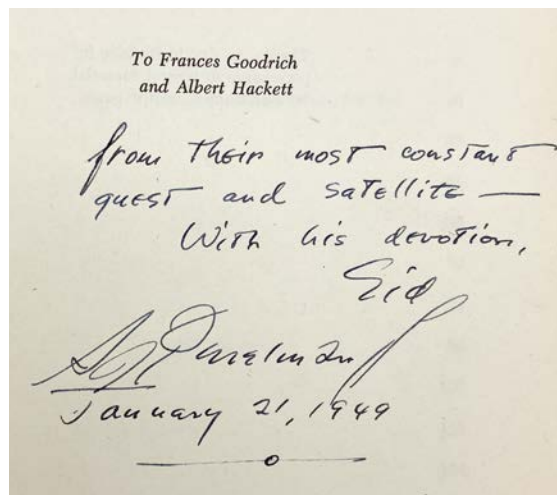 To Frances Goodrich
and Albert Hackett
from their most constant
guest and satellite —
With his devotion,
Sid
S J Perelman
January 21, 1949